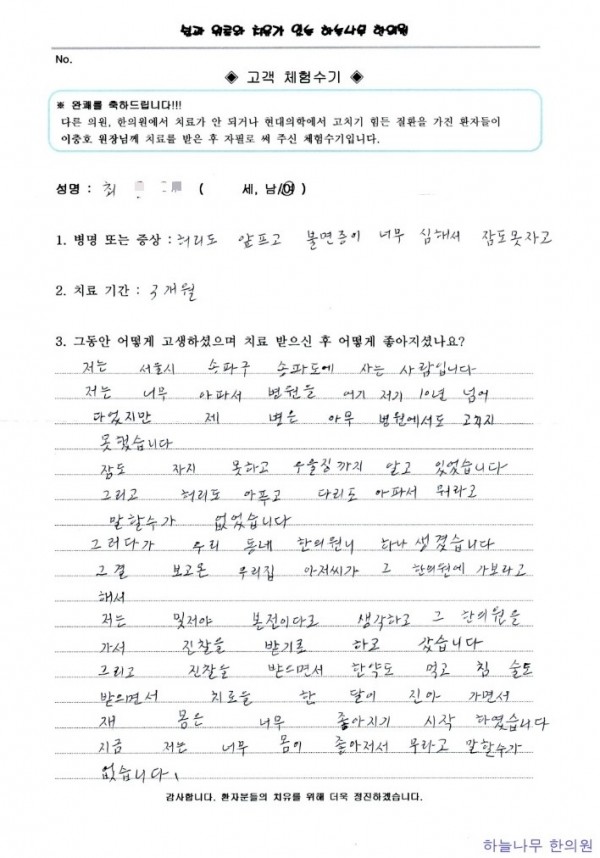 No.
◈ 고객 체험수기 ◈
※ 완쾌를 축하드립니다!!!
다른 의원, 한의원에서 치료가 안 되거나 현대의학에서 고치기 힘든 질환을 가진 환자들이
이중호 원장님께 치료를 받은 후 자필로 써 주신 체험수기입니다.
성명 : 최 ( 세, 남/여 )
1. 병명 또는 증상 : 허리도 앞프고 불면증이 너무 심해서 잠도못자고
2. 치료 기간 : 3개월
3. 그동안 어떻게 고생하셨으며 치료 받으신 후 어떻게 좋아지셨나요?
저는 서울시 송파구 송파도에 사는 사람입니다
저는 너무 아파서 변원을 여기 저기 10년 넘어
다었지만 제 병은 아무 병원에서도 고키지
못했습니다
잠도 자지 못하고 우울징까지 알고 있었습니다
그리고 허리도 아푸고 다리도 아파서 뭐라고
말할수가 없었습니다
그러다가 우리 동네 한의원니 하나 생겼습니다
그걸 보고온 우리집 아저씨가 그 한의원에 가보라고
해서
저는 밎저야 본전이다로 생각하고 그 한의원을
가서 진찰을 받기로 하고 갔습니다
그리고 진찰을 받으면서 한약도 먹고 침 술도
받으면서 치료을 한 달이 진아 가면서
재 몸은 너무 좋아지기 시작 하였습니다
지금 저는 너무 몸이 좋아저서 무라고 말할수가
없습니다.
감사합니다. 환자분들의 치유를 위해 더욱 정진하겠습니다.
하늘나무 한의원